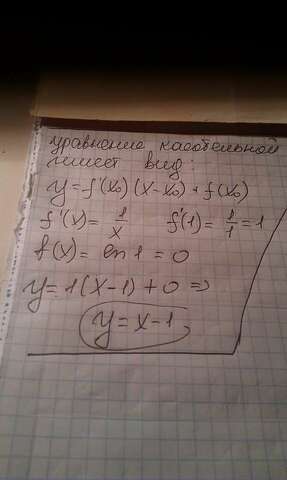 уравнение касательной
имеет вид:
y = f'(x₀)(x-x₀) + f(x₀)
f'(x) = 1/x f'(1) = 1/1 = 1
f(x) = ln 1 = 0
y = 1(x-1) + 0 ⇒
y = x-1